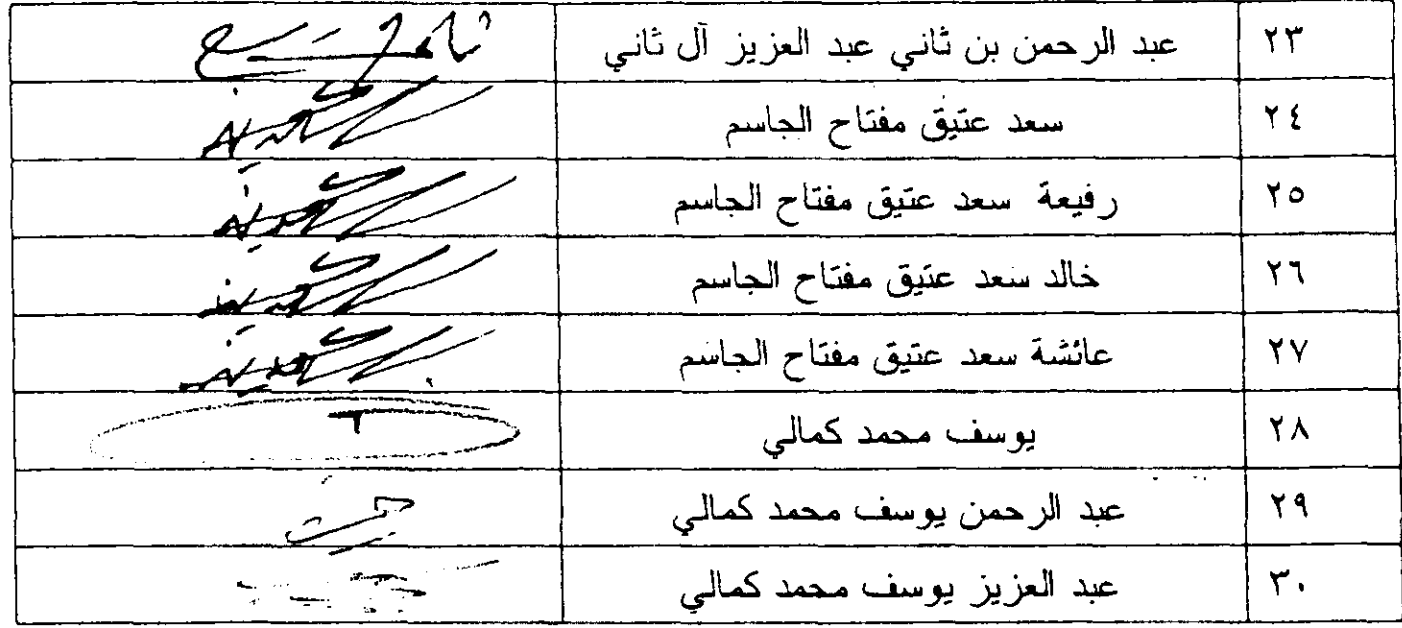 ٢٣ عبد الرحمن بن ثاني عبد العزيز آل ثاني
٢٤ سعد عتيق مفتاح الجاسم
٢٥ رفيعة سعد عتيق مفتاح الجاسم
٢٦ خالد سعد عتيق مفتاح الجاسم
٢٧ عائشة سعد عتيق مفتاح الجاسم
٢٨ يوسف محمد كمالي
٢٩ عبد الرحمن يوسف محمد كمالي
٣٠ عبد العزيز يوسف محمد كمالي